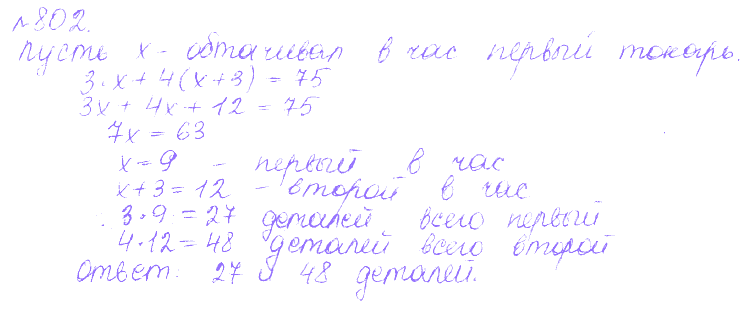 №802.
Пусть x - обтачивал в час первый токарь.
3·x + 4(x+3) = 75
3x + 4x + 12 = 75
7x = 63
x = 9 - первый в час
x+3 = 12 - второй в час
3·9 = 27 деталей всего первый
4·12 = 48 деталей всего второй
Ответ: 27 и 48 деталей.